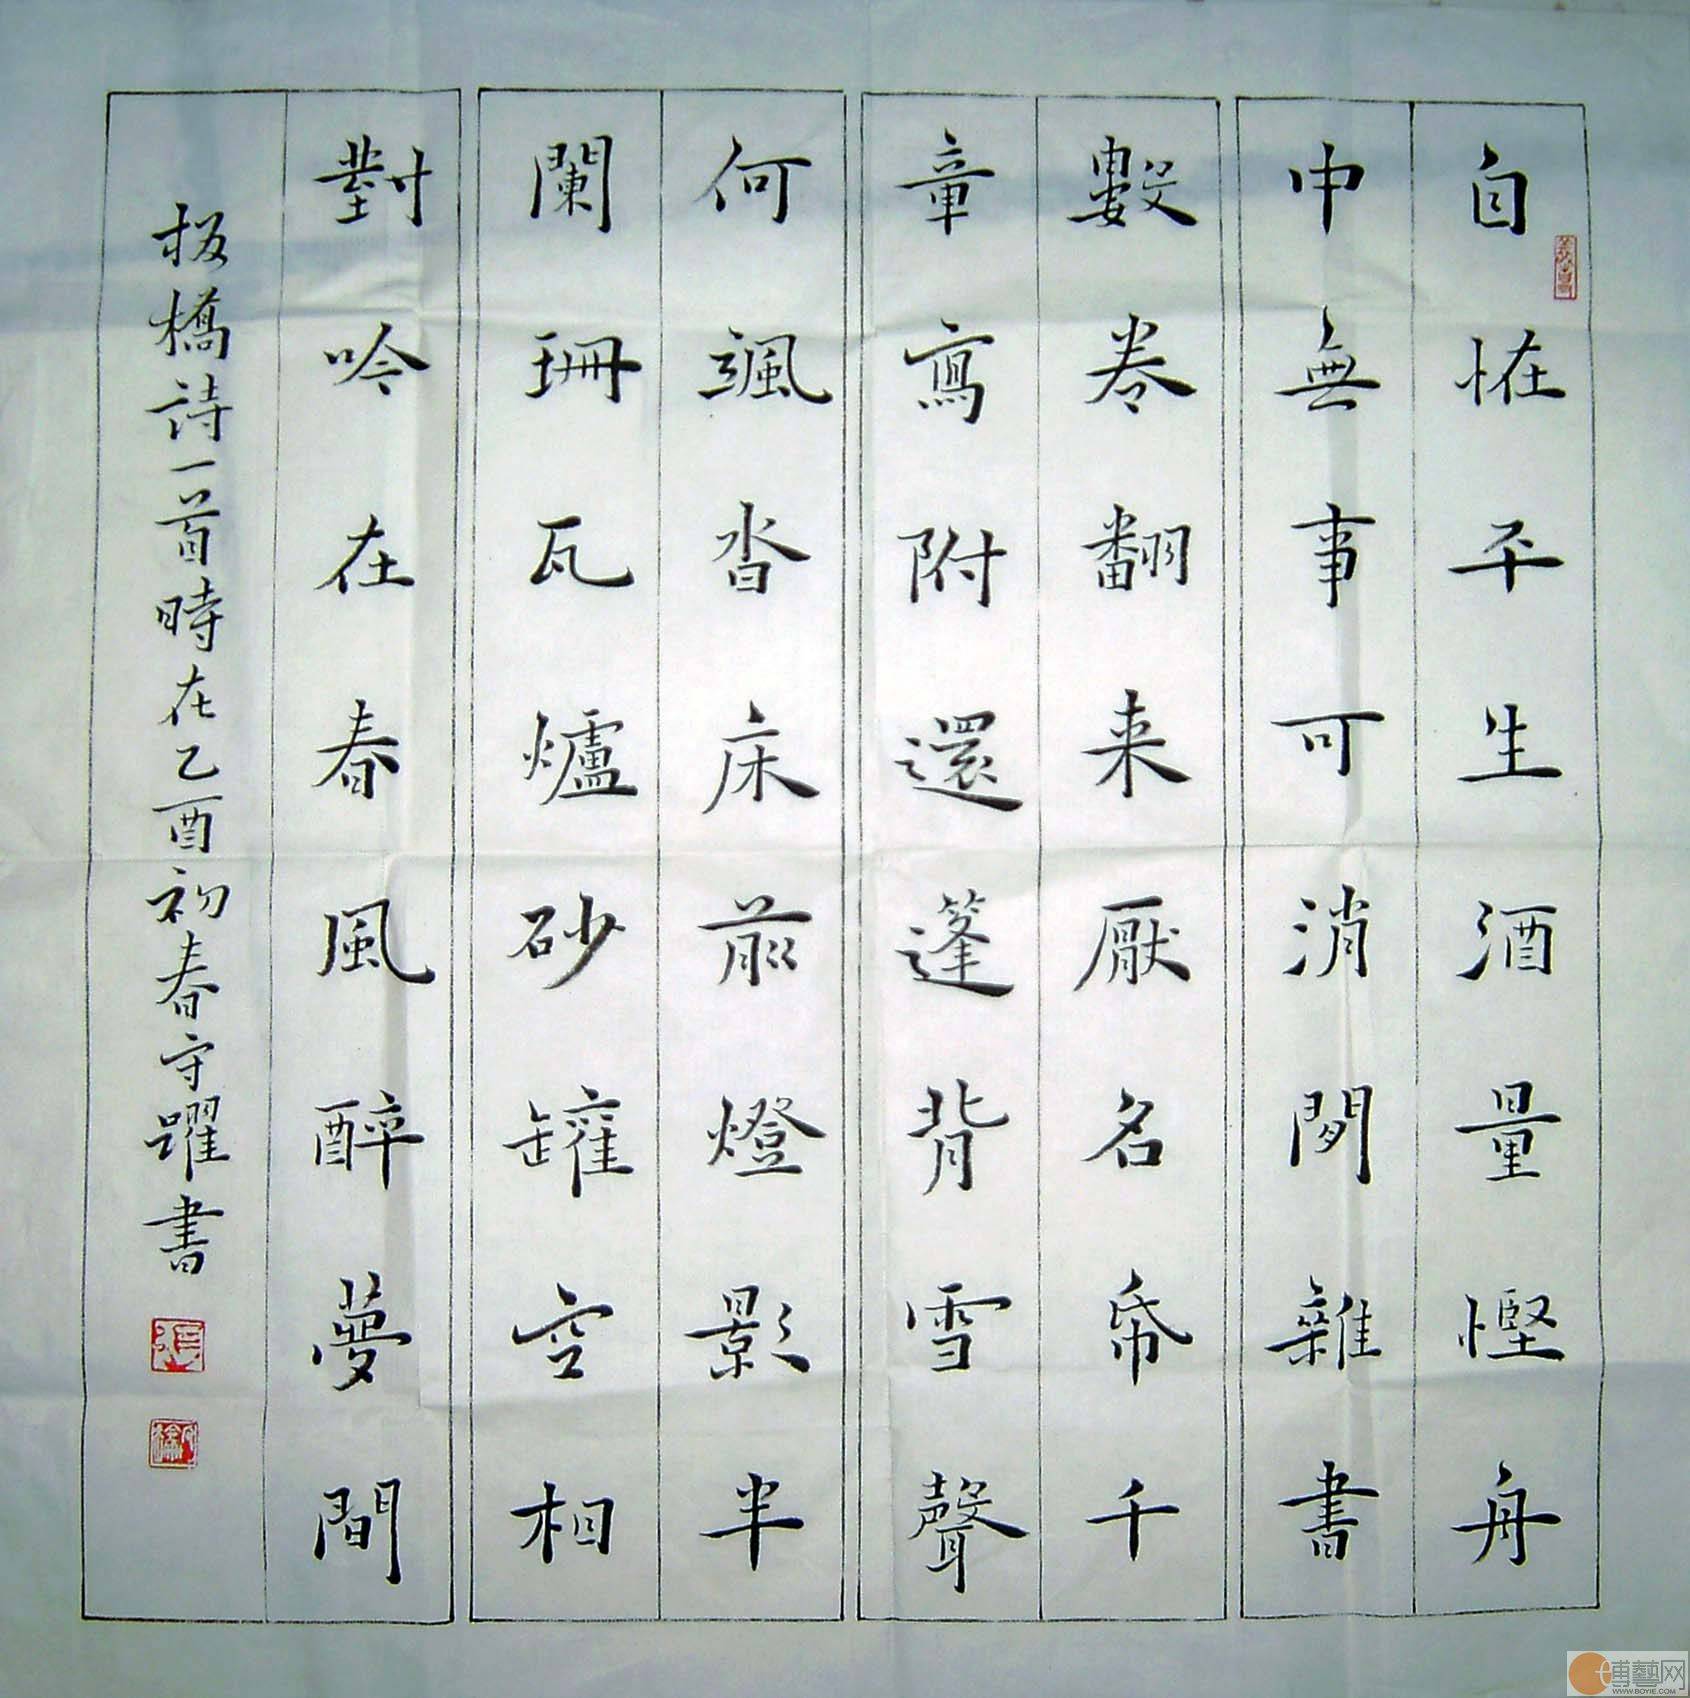 自恠平生酒量慳舟
中無事可消閒雜書
數卷翻来厭名帋千
章寫附還篷背雪聲
何颯沓床前燈影半
闌珊瓦爐砂罐空相
對吟在春風醉夢間
板橋詩一首時在乙酉初春守躍書
張
博藝网
WWW.BOYIE.COM